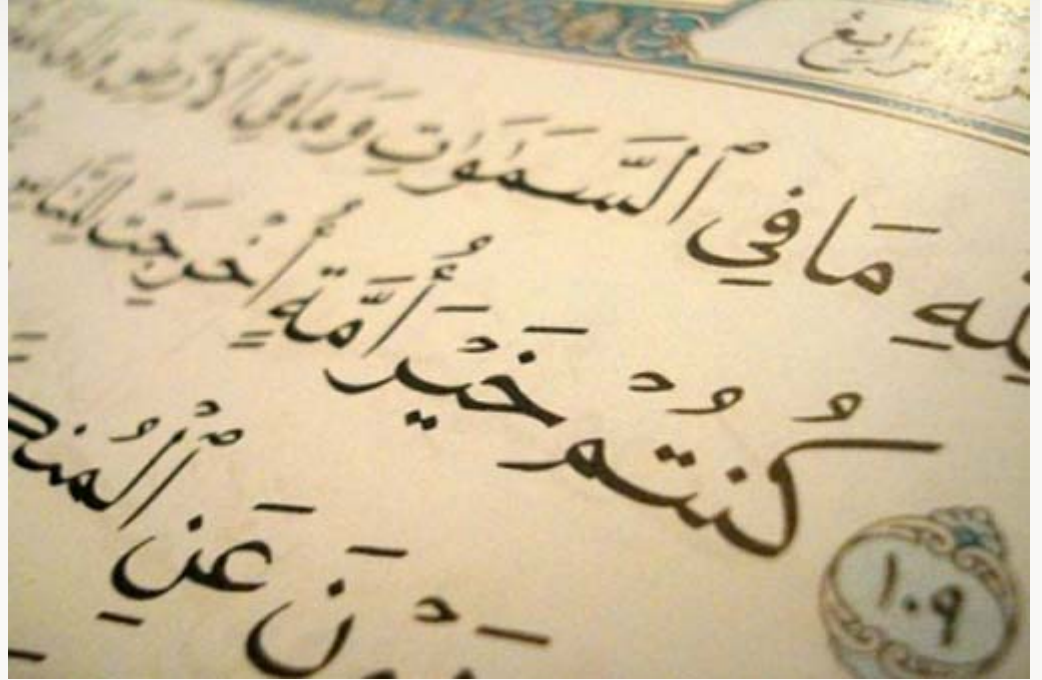 الرَّابِعُ
مَا فِي ٱلسَّمَٰوَٰتِ وَمَا فِي ٱلْأَرْضِ
١٠٩ كُنتُمْ خَيْرَ أُمَّةٍ أُخْرِجَتْ لِلنَّاسِ
عَنِ ٱلْمُنكَ